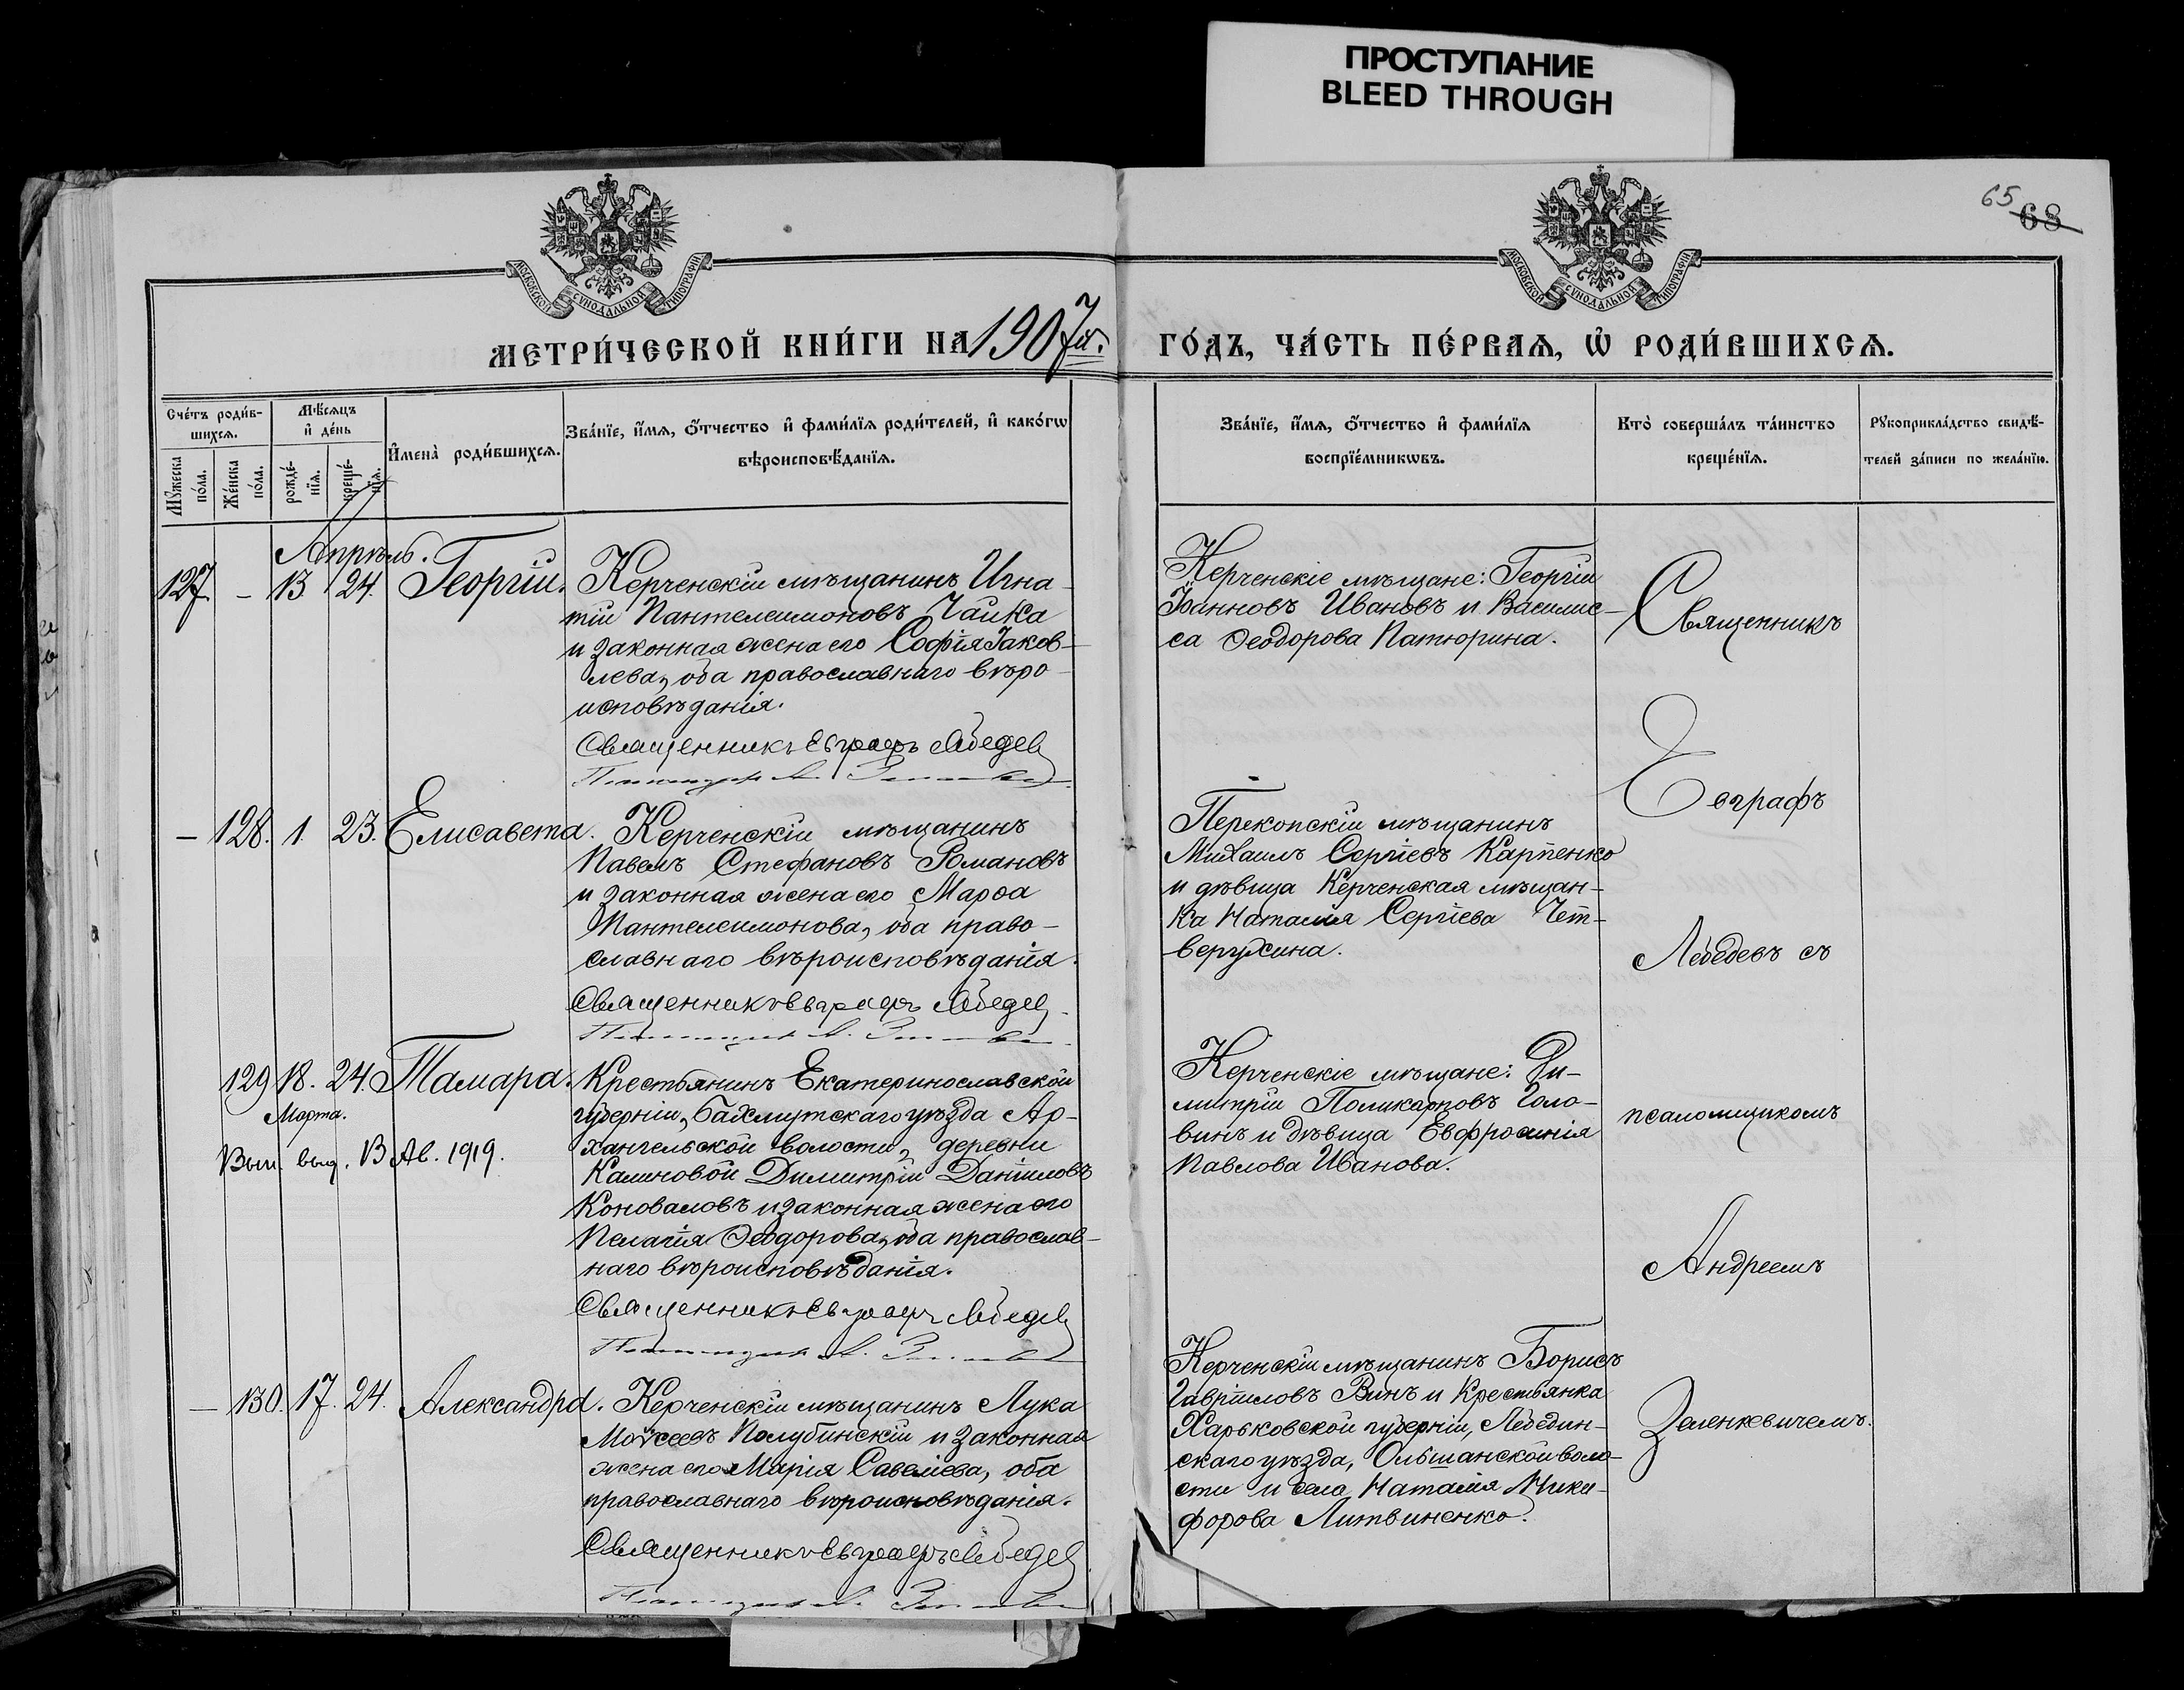 ПРОСТУПАНИЕ
BLEED THROUGH
65 68
МОСКОВСКОЙ СѴНОДАЛЬНОЙ ТИПОГРАФІИ
МОСКОВСКОЙ СѴНОДАЛЬНОЙ ТИПОГРАФІИ
МЕТРИ́ЧЕСКОЙ КНИ́ГИ НА 1907й.
ГО́ДЪ, ЧА́СТЬ ПЕ́РВАЯ, Ѡ҆ РОДИ́ВШИХСЯ.
Сче́тъ роди́в-
шихся.
Мꙋ́жеска
по́ла.
Же́нска
по́ла.
Мѣ́сяцъ
и҆ де́нь
рожде́-
нїя.
креще́-
нїя.
И҆мена̀ роди́вшихся.
Зва́нїе, и҆́мя, ѻ҆́тчество и҆ фами́лїя роди́телей, и҆ како́гѡ
вѣроисповѣ́данїя.
Зва́нїе, и҆́мя, ѻ҆́тчество и҆ фами́лїя
воспрїе́мникѡвъ.
Кто̀ соверша́лъ та́инство
креще́нїя.
Рꙋкоприкла́дство свидѣ́-
телей за́писи по жела́нїю.
Апрѣль.
127. - 13 24. Георгій.
Керченскій мѣщанинъ Игна-
тій Пантелеимоновъ Чайка
и законная жена его Софія Іаков-
лева, оба православнаго вѣро-
исповѣданія.
Священникъ Евграфъ Лебедев
Керченскіе мѣщане: Георгій
Іоанновъ Ивановъ и Василис-
са Ѳеодорова Патюрина.
- 128. 1. 23. Елисавета.
Керченскій мѣщанинъ
Павелъ Стефановъ Романовъ
и законная жена его Марѳа
Пантелеимонова, оба право-
славнаго вѣроисповѣданія.
Священникъ Евграфъ Лебедев
Перекопскій мѣщанинъ
Михаилъ Сергіевъ Карпенко
и дѣвица Керченская мѣщан-
ка Наталія Сергіева Чет-
вергухина.
129 18. 24. Тамара.
Марта.
Вып. выд. 13 Ав. 1919.
Крестьянинъ Екатеринославской
губерніи, Бахмутскаго уѣзда Ар-
хангельской волости, деревни
Калиновой Димитрій Даніиловъ
Коноваловъ и законная жена его
Пелагія Ѳеодорова, оба православ-
наго вѣроисповѣданія.
Священникъ Евграфъ Лебедев
Керченскіе мѣщане: Ди-
митрій Поликарповъ Голо-
винъ и дѣвица Евфросинія
Павлова Иванова.
- 130. 17. 24. Александра.
Керченскій мѣщанинъ Лука
Моѵсеевъ Полубинскій и законная
жена его Марія Савеліева, оба
православнаго вѣроисповѣданія.
Священникъ Евграфъ Лебедев
Керченскій мѣщанинъ Борисъ
Гавріиловъ Винъ и крестьянка
Харьковской губерніи, Лебедин-
скаго уѣзда, Ольшанской воло-
сти и села Наталія Ники-
форова Литвиненко.
Священникъ
Евграфъ
Лебедевъ съ
псаломщикомъ
Андреемъ
Зеленкевичемъ.